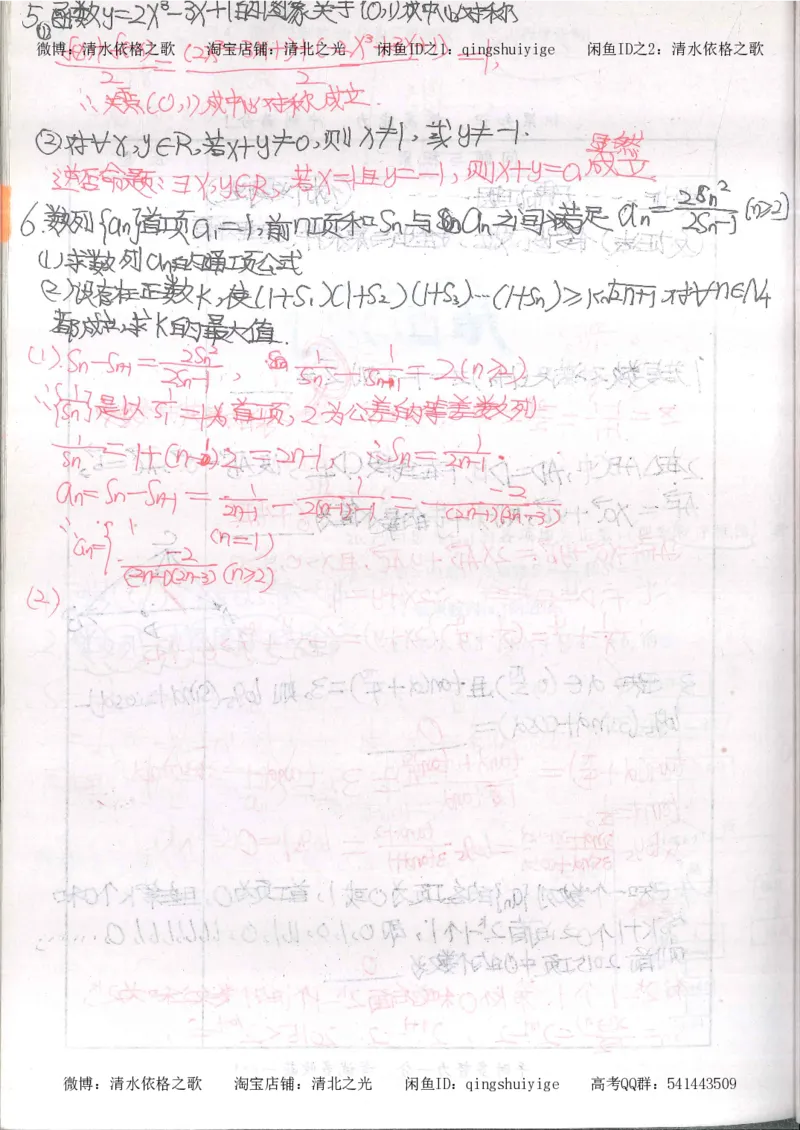 5. 函数y=2x³-3x+1的图象关于(0,1)成中心对称
①
微博：清水依格之歌 淘宝店铺：清北之光 闲鱼ID之1：qingshuiyige 闲鱼ID之2：清水依格之歌
∴关于点(0,1)成中心对称成立.
②对∀x,y∈R,若x+y≠0,则x≠1,或y≠-1.
逆否命题：∃x,y∈R,若x=1且y=-1,则x+y=0,显然成立.
6.数列{an}首项a₁=1,前n项和Sn与an之间满足 an=2Sn²/(2Sn-1) (n≥2)
(1)求数列an的通项公式
(2)设存在正数K,使(1+S₁)(1+S₂)(1+S₃)…(1+Sn)≥K√2n+1,对∀n∈N+
都成立,求K的最大值.
(1).Sn-Sn-1=2Sn²/(2Sn-1), 1/Sn-1/Sn-1=2(n≥2)
∴{1/Sn}是以1/S₁=1为首项,2为公差的等差数列
1/Sn=1+(n-1)·2=2n-1, ∴Sn=1/(2n-1).
an=Sn-Sn-1=1/(2n-1)-1/(2(n-1)-1)=-2/((2n-1)(2n-3))
∴an={1 (n=1)
-2/((2n-1)(2n-3)) (n≥2)
(2)
微博：清水依格之歌 淘宝店铺：清北之光 闲鱼ID：qingshuiyige 高考QQ群：541443509